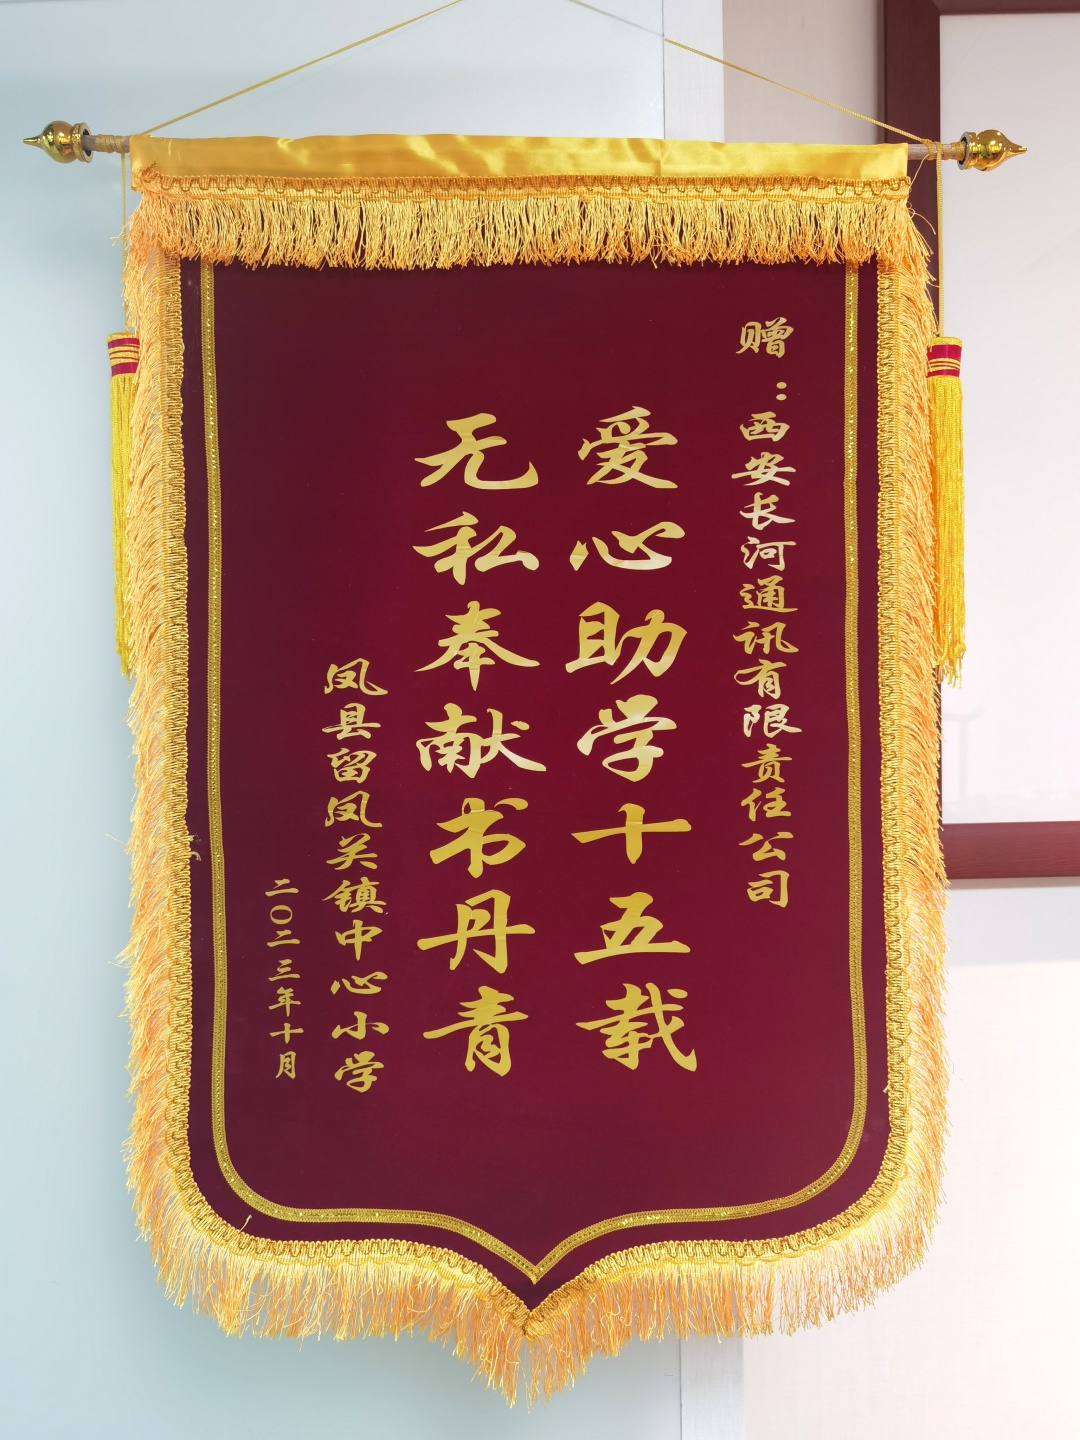 赠：西安长河通讯有限责任公司
爱心助学十五载
无私奉献书丹青
凤县留凤关镇中心小学
二〇二三年十月